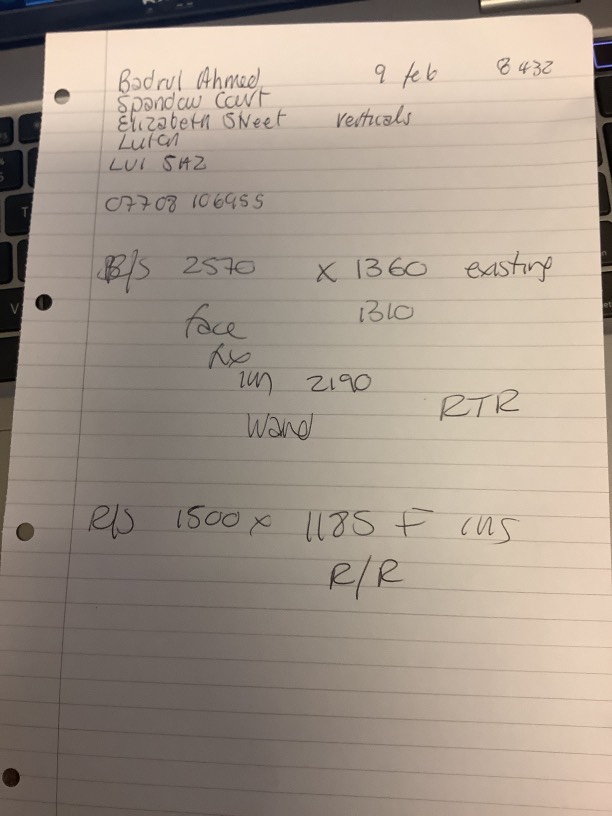 Badrul Ahmed 9 feb 8432
Spandow Court
Elizabeth Street verticals
Luton
LU1 5AZ
07708 106955
B/S 2570 x 1360 existing
1310
face
fix
in 2190
RTR
Wand
R/S 1500 x 1185 F ins
R/R